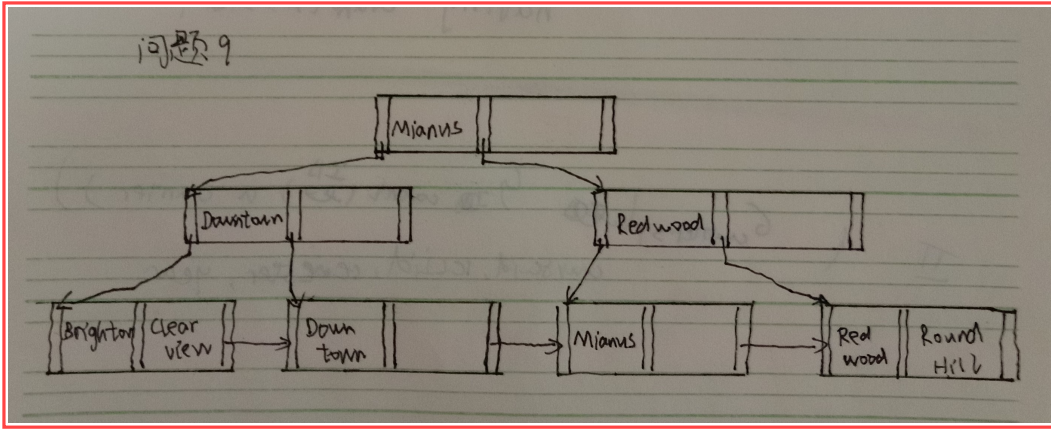 问题9
Mianus
Downtown
Redwood
Brighton
Clear
view
Down
town
Mianus
Red
wood
Round
Hill